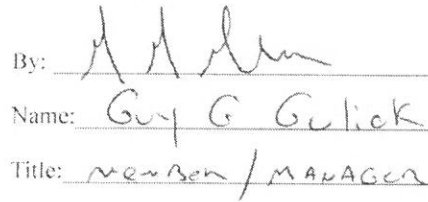 By:
Name: Guy G Gulick
Title: MEMBER / MANAGER